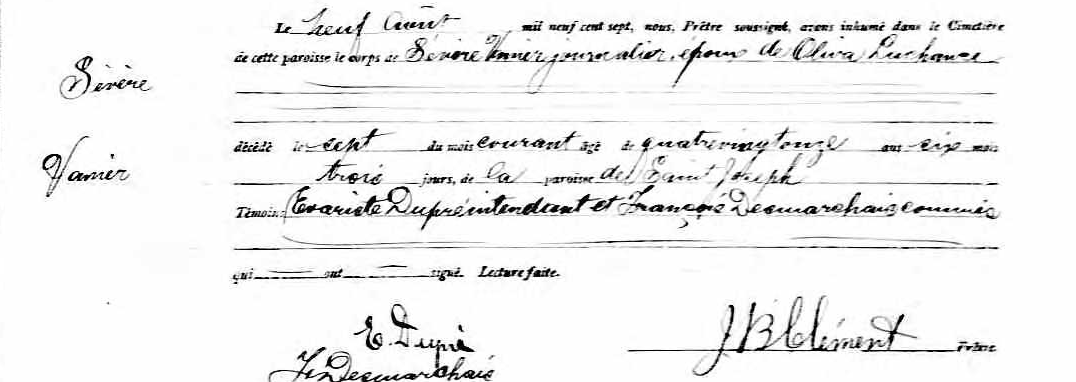 Le neuf août mil neuf cent sept, nous, Prêtre soussigné, avons inhumé dans le Cimetière
de cette paroisse le corps de Sévère Vanier journalier, époux de Oliva Luchance
Sévère
décédé le sept du mois courant âgé de quatrevingtonze ans six mois
Vanier
trois jours, de la paroisse de Saint Joseph
Témoins: Evariste Dupré intendant et François Desmarchais commis
qui ont signé. Lecture faite.
E. Dupré
J B Clément Prêtre
Fr Desmarchais